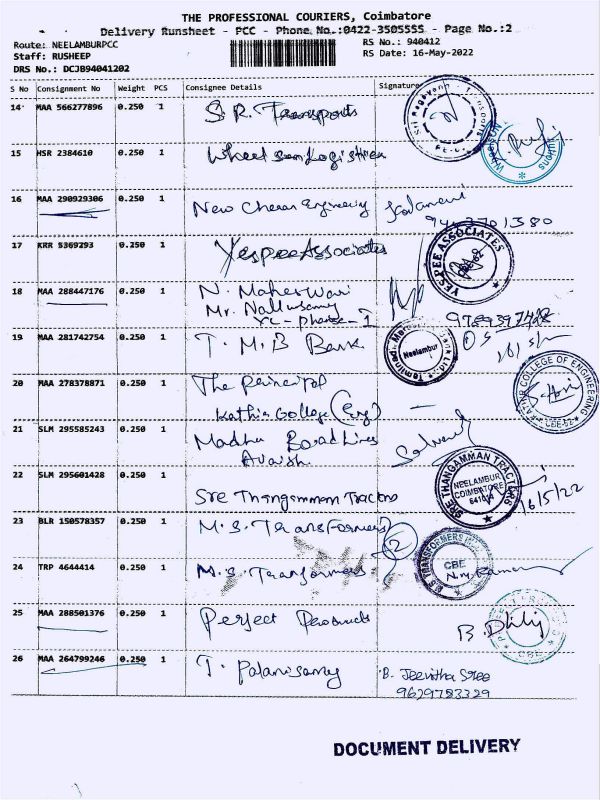 THE PROFESSIONAL COURIERS, Coimbatore
Delivery Runsheet - PCC - Phone No.:0422-3505555 - Page No.:2
Route: NEELAMBURPCC
RS No.: 940412
Staff: RUSHEEP
RS Date: 16-May-2022
DRS No.: DCJB94041202
S No Consignment No Weight PCS Consignee Details Signature
14 MAA 566277896 0.250 1 S. R. Transports
15 HSR 2384610 0.250 1 Wheel sun Logistics
16 MAA 290929306 0.250 1 New Cheran Engineering
17 KRR 5369293 0.250 1 Yespee Associates
YESPEE ASSOCIATES
18 MAA 288447176 0.250 1 N. Maheswari
Mr. Nallusamy
19 MAA 281742754 0.250 1 T. M. B Bank
Neelambur
20 MAA 278378871 0.250 1 The Principal
Kathir College (Eng)
COLLEGE OF ENGINEERING
21 SLM 295585243 0.250 1 Madhu Road Lines
22 SLM 295601428 0.250 1 Sre Thangamman Tractors
SRE THANGAMMAN TRACTORS
NEELAMBUR
COIMBATORE
16/5/22
23 BLR 150578357 0.250 1 M. S. Transformers
2
24 TRP 4644414 0.250 1 M. S. Transformers
TRANSFORMERS
CBE
25 MAA 288501376 0.250 1 Perfect Products
26 MAA 264799246 0.250 1 T. Palanisamy
B. Jeevitha Sree
9629783329
DOCUMENT DELIVERY